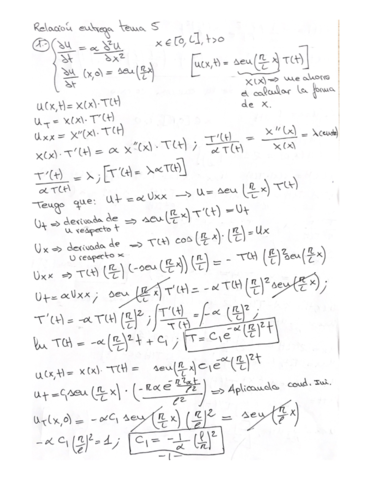 Relación entrega tema 5
1.- { ∂u/∂t = α ∂²u/∂x²   x ∈ [0, L], t>0
∂u/∂t (x,0) = sen(π/L x)   [u(x,t) = sen(π/L x) T(t)]
X(x) → me ahorro
el calcular la forma
de X.
u(x,t) = X(x)·T(t)
u_T = X(x)·T'(t)
u_xx = X''(x)·T(t)
X(x)·T'(t) = α X''(x)·T(t) ; T'(t)/αT(t) = X''(x)/X(x) = λ
T'(t)/αT(t) = λ ; [T'(t) = λαT(t)]
Tengo que: Ut = αUxx → U = sen(π/L x) T(t)
Ut ⇒ derivada de u respecto t ⇒ sen(π/L x) T'(t) = Ut
Ux ⇒ derivada de u respecto x ⇒ T(t) cos(π/L x)·(π/L) = Ux
Uxx ⇒ T(t) (π/L) (-sen(π/L x)) (π/L) = - T(t) (π/L)² sen(π/L x)
Ut = αUxx ; sen(π/L x) T'(t) = -α T(t) (π/L)² sen(π/L x) ;
T'(t) = -α T(t) (π/L)² ; ∫ T'(t)/T(t) = ∫ -α (π/L)² ;
ln T(t) = -α (π/L)² t + C1 ; T = C1 e^(-α(π/L)² t)
u(x,t) = X(x)·T(t) = sen(π/L x) C1 e^(-α(π/L)² t)
ut = C1 sen(π/L x) · ⇒ Aplicando cond. Ini.
u_T(x,0) = -α C1 sen(π/L x) (π/ℓ)² = sen(π/ℓ x)
-α C1 (π/ℓ)² = 1 ; C1 = -1/α (ℓ/π)²
-1-